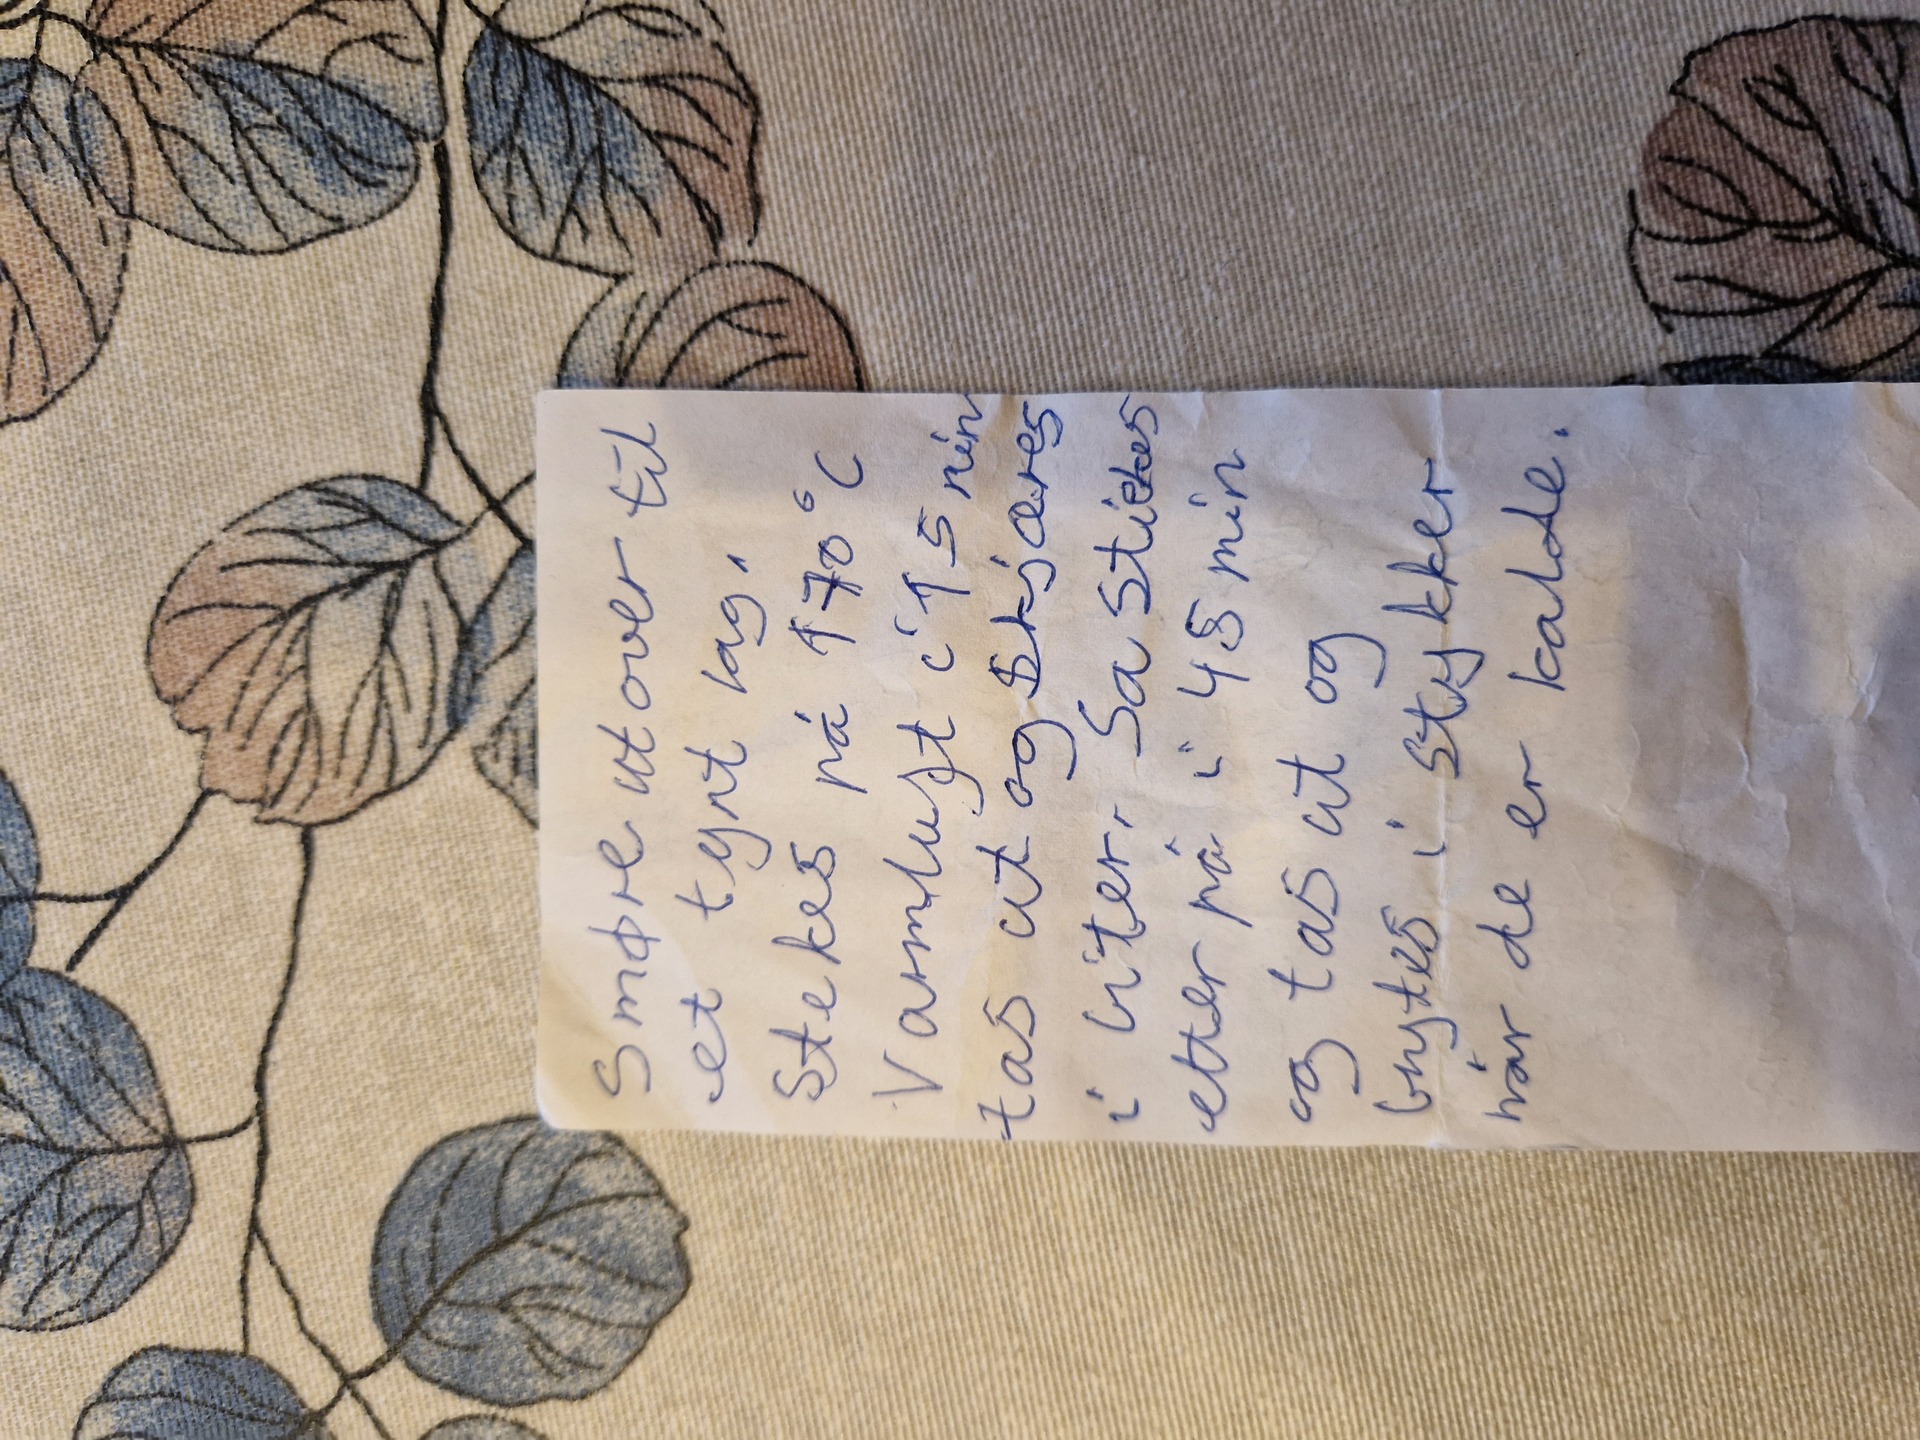 Smøre utover til
et tynt lag.
Stekes på 170°C
Varmluft i 15 min
tas ut og skjæres
i biter. Sa stekes
etter på i 45 min
og tas ut og
brytes i stykker
når de er kalde.